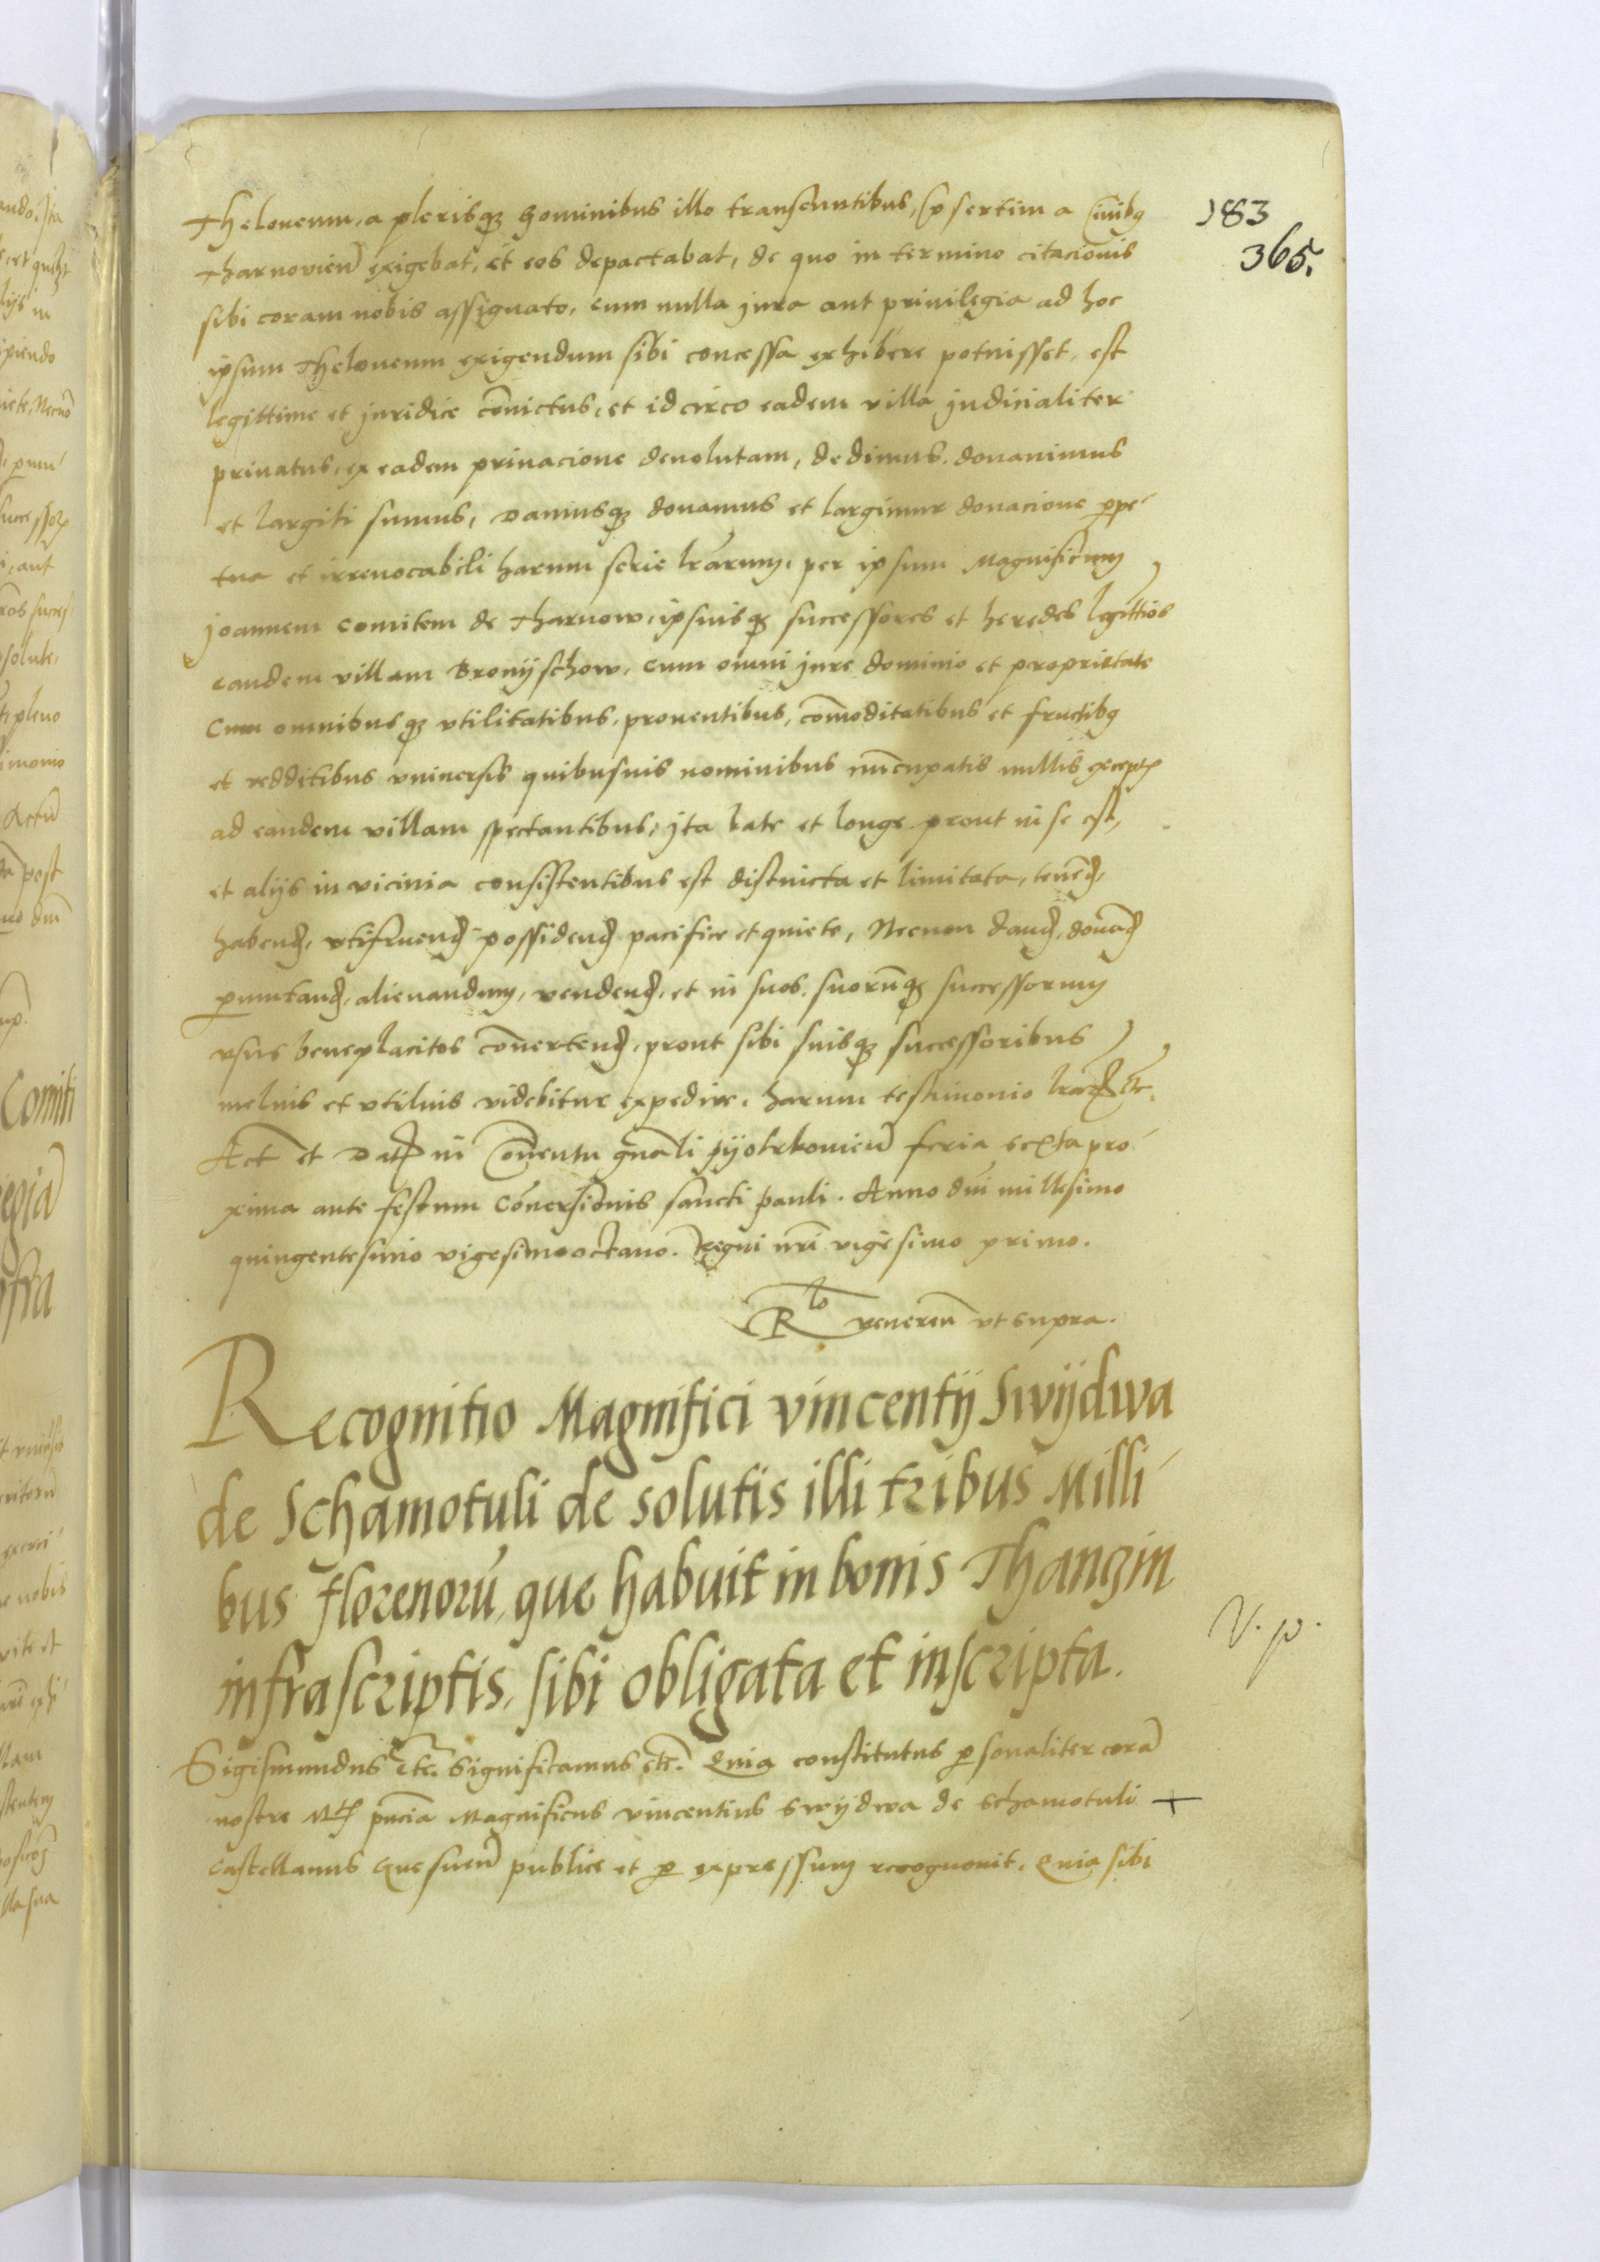 183
365.
Theloneum, a plerisq; hominibus illo transeuntibus, p̱sertim a Ciuibꝫ
Tharnovien̄ exigebat, et eos depactabat, de quo in termino citacionis
sibi coram nobis assignato, cum nulla jura aut privilegia ad hoc
ipsum Theloneum exigendum sibi concessa exhibere potuisset, est
legittime et juridice cōnictus, et idcirco eadem villa judicialiter
privatus, ex eadem privacione devolutam, dedimus, donavimus
et largiti sumus, Damusq; donamus et largimur donacione ꝑpe
tua et irrevocabili harum serie lr̄arum, per ipsum Magnificum
joannem comitem de Tharnow, ipsiusq; successores et heredes lgittīos
eandem villam Bronijschow, cum omni jure dominio et proprietate
Cum omnibusq; vtilitatibus, proventibus, com̄oditatibus et fructibꝫ
et redditibus vniversis quibusvis nominibus nūcupatis nullis exceptꝭ
ad eandem villam spectantibus, jta late et longe prout in se est,
et alijs in vicinia consistentibus est distincta et limitata, tenen̄d,
habend, vtifruend possidend pacifice et quiete, Necnon dand, donād
ꝑmutand, alienandum, vendend, et in suos, suorūq; successorum
vsus beneplacitos cōnertend, prout sibi suisq; successoribus
melius et vtilius videbitur expedire, harum testimonio lrarꝝ etc̄.
Act̄ et Datꝭ in Cōnentu gn̄ali pijotrkovien̄ feria sexta pro
xima ante festum Cōnersionis sancti pauli. Anno dn̄i millesimo
quingentesimo vigesimooctavo. Regni nr̄i vigesimo primo.
R^lo veneren̄ vt supra.
Recognitio Magnifici vincentij Swijdwa
de Schamotuli de solutis illi tribus Milli
bus florenorū, que habuit in bonis Thanzin
infrascriptis, sibi obligata et inscripta.
V. p.
Sigismundus etc̄. Significamus etc̄. Quia constitutus ꝑsonaliter corā
nostre Mtꝭ pn̄cia Magnificus vincentius Swijdwa de Schamotuli +
castellanus gnesnen̄ publice et ꝑ expressum recognovit, Quia sibi